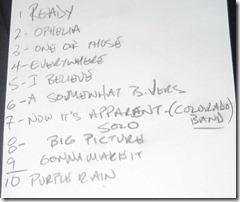 1 READY
2- OPHELIA
3- ONE OF THOSE
4- EVERYWHERE
5- I BELIEVE
6- A SOMEWHAT B. VERS
7- NOW IT'S APPARENT-(COLORADO
SOLO BAND
8- BIG PICTURE
9 GONNA MAKE IT
10 PURPLE RAIN